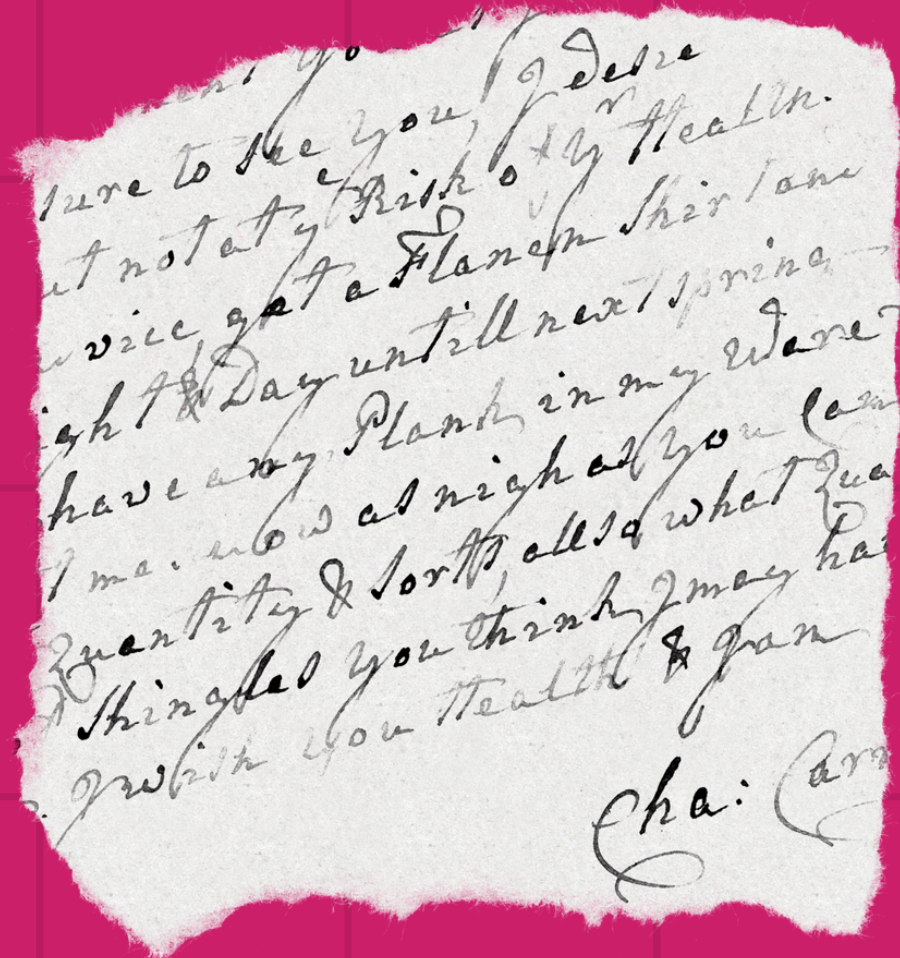 sure to see you, I desire
ut not at ye Risk of yr Health.
vice, get a Flanen Shirt and
ight & Day untill next spring
have any Plank in my Ware
t me. now as nigh as you Can
Quantity & sorts, allso what Qua
Shingles you think I may ha
I wish you Health & I am
Cha: Carr